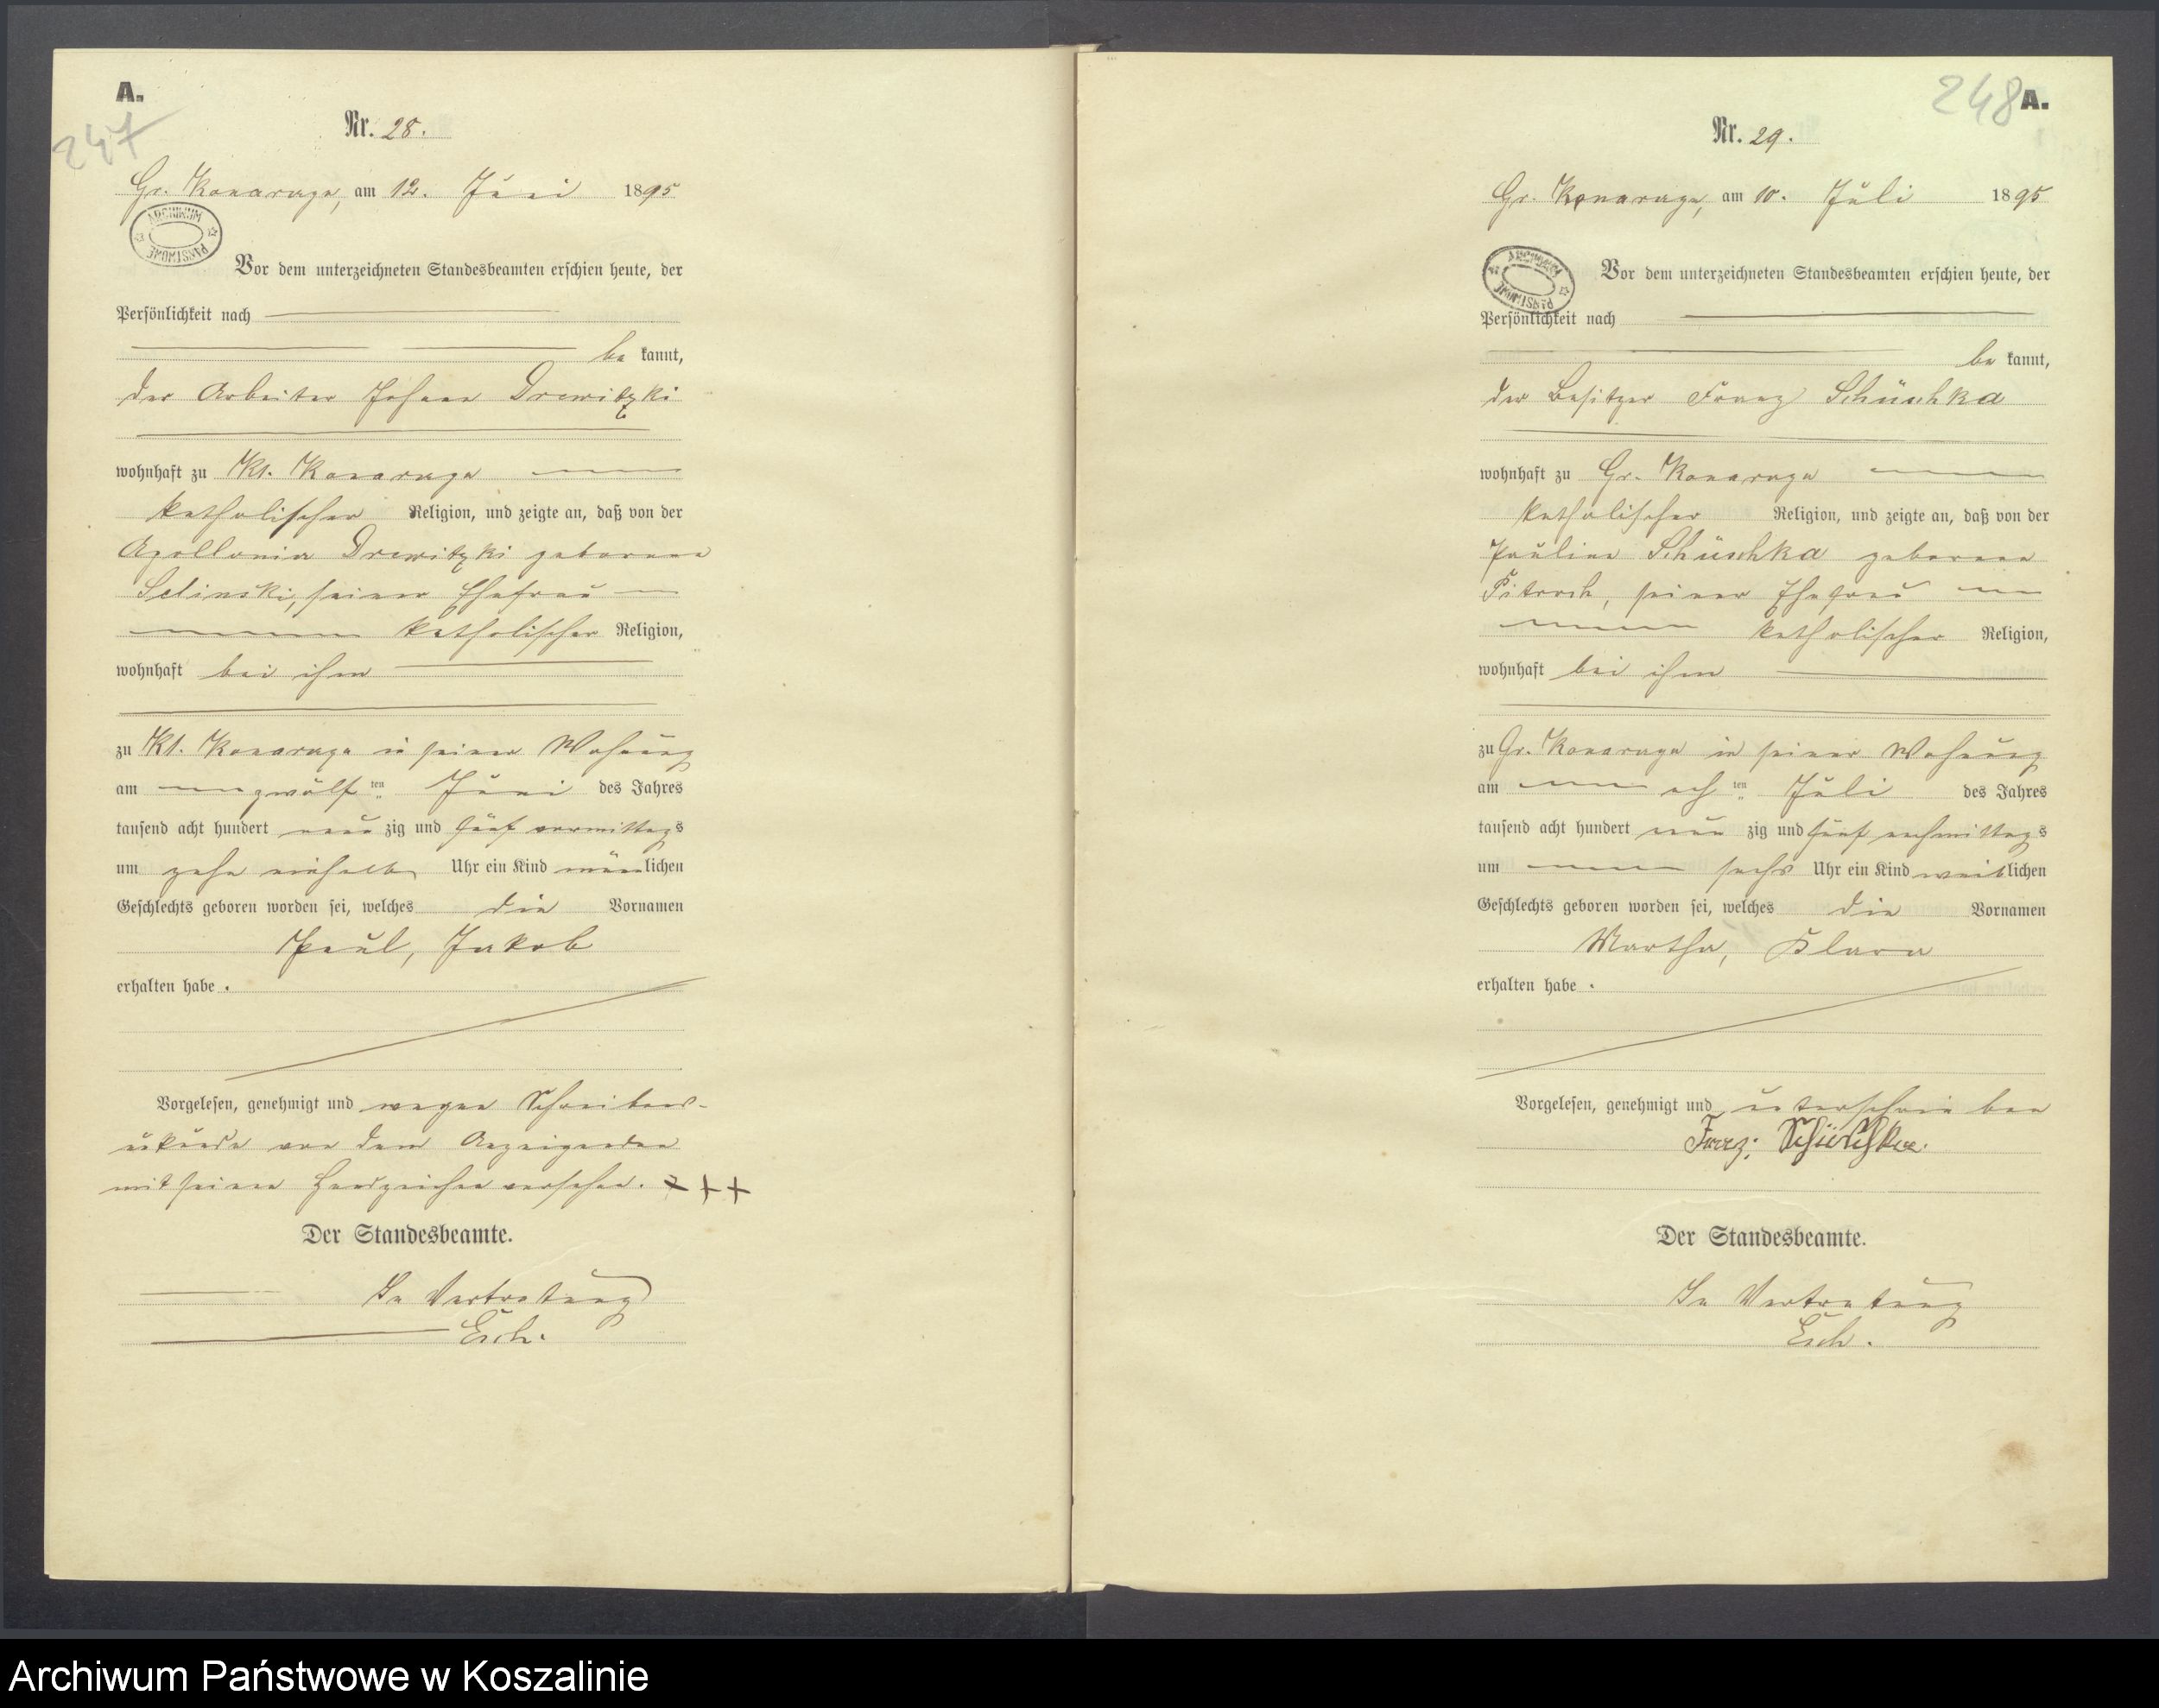 A.
247
Nr. 28.
Gr. Konarczyn, am 12. Juni 1895
ARCHIWUM PAŃSTWOWE
Vor dem unterzeichneten Standesbeamten erschien heute, der
Persönlichkeit nach
be kannt,
der Arbeiter Johann Drewitzki
wohnhaft zu Kl. Konarczyn
katholischer Religion, und zeigte an, daß von der
Apollonia Drewitzki geborene
Selinski, seiner Ehefrau
katholischer Religion,
wohnhaft bei ihm
zu Kl. Konarczyn in seiner Wohnung
am zwölf ten Juni des Jahres
tausend acht hundert neun zig und fünf vormittags
um zehn einhalb Uhr ein Kind männlichen
Geschlechts geboren worden sei, welches die Vornamen
Paul, Jakob
erhalten habe.
Vorgelesen, genehmigt und wegen Schreibens-
unkunde von dem Anzeigenden
mit seinen Handzeichen versehen. +++
Der Standesbeamte.
In Vertretung
Esch.
248 A.
Nr. 29.
Gr. Konarczyn, am 10. Juli 1895
ARCHIWUM PAŃSTWOWE
Vor dem unterzeichneten Standesbeamten erschien heute, der
Persönlichkeit nach
be kannt,
der Besitzer Franz Schüschka
wohnhaft zu Gr. Konarczyn
katholischer Religion, und zeigte an, daß von der
Pauline Schüschka geborene
seiner Ehefrau
katholischer Religion,
wohnhaft bei ihm
zu Gr. Konarczyn in seiner Wohnung
am ach ten Juli des Jahres
tausend acht hundert neun zig und fünf nachmittags
um sechs Uhr ein Kind weiblichen
Geschlechts geboren worden sei, welches die Vornamen
Martha, Klara
erhalten habe.
Vorgelesen, genehmigt und unterschrieben
Franz Schüschka.
Der Standesbeamte.
In Vertretung
Esch.
Archiwum Państwowe w Koszalinie